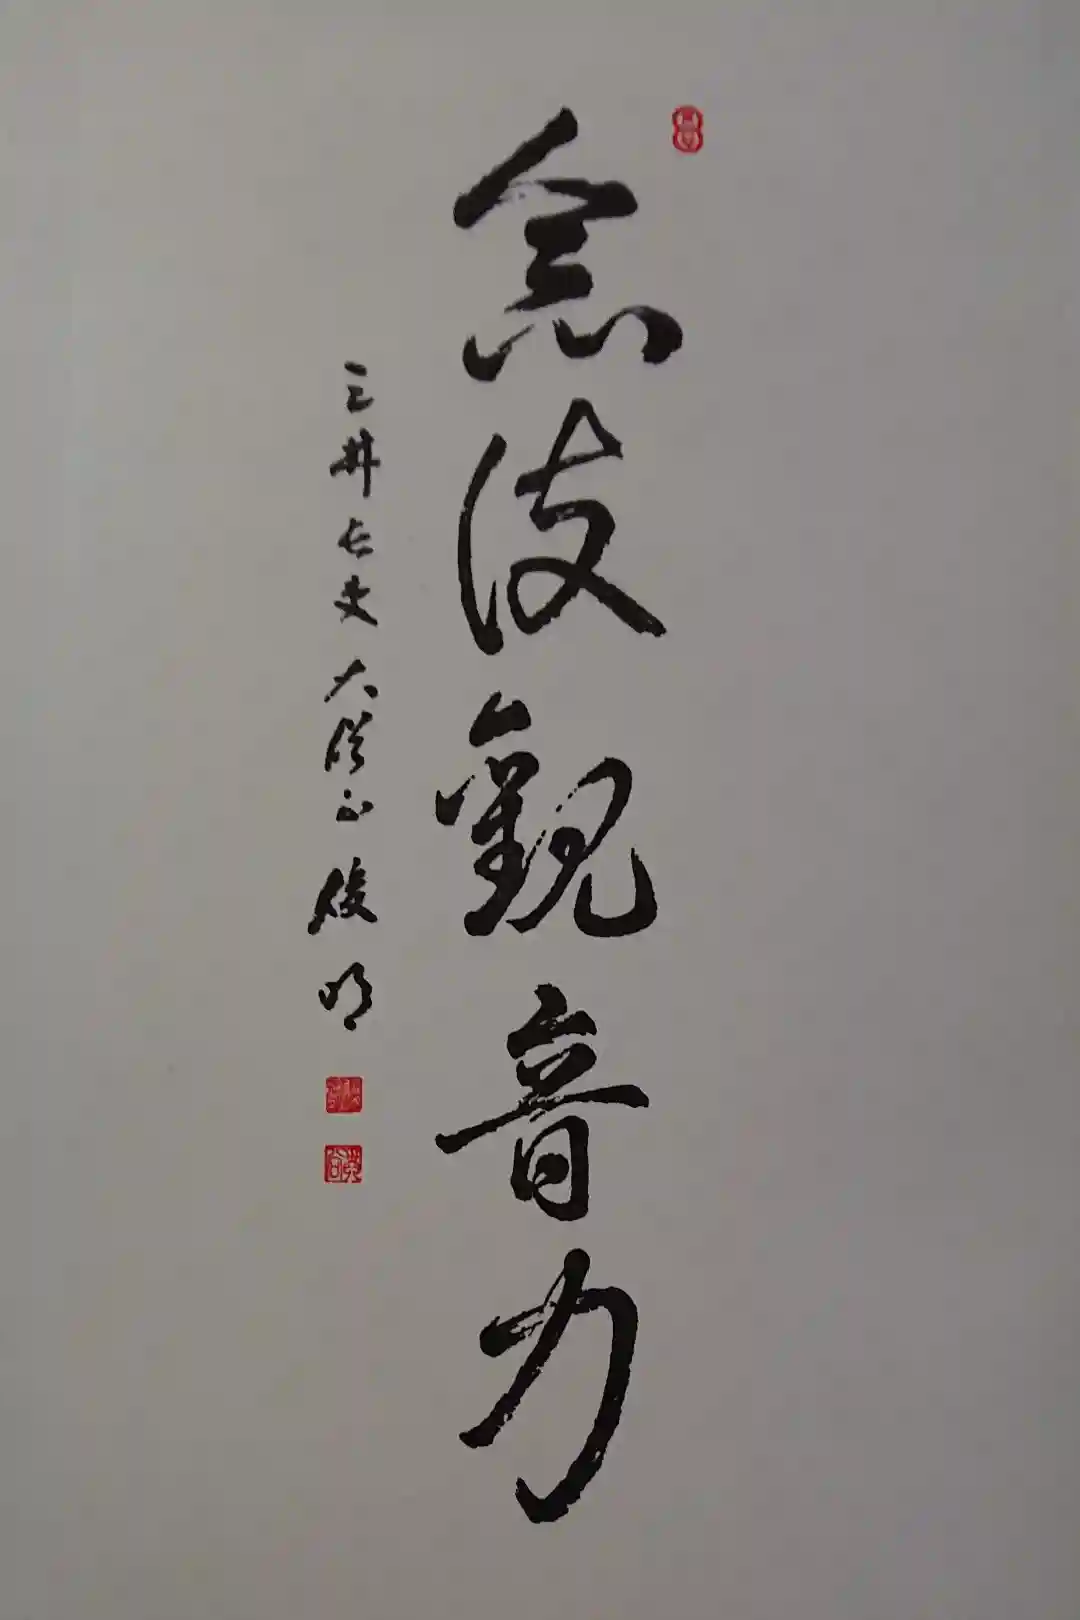 念彼観音力
三井長吏 大僧正 俊明